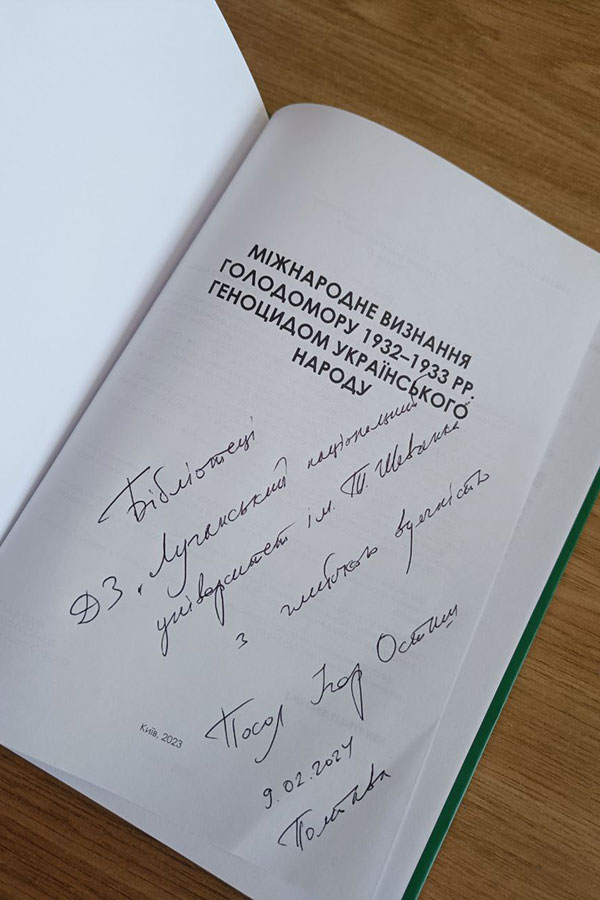 МІЖНАРОДНЕ ВИЗНАННЯ
ГОЛОДОМОРУ 1932–1933 РР.
ГЕНОЦИДОМ УКРАЇНСЬКОГО
НАРОДУ
Бібліотеці
ДЗ „Луганський національний
університет ім. Т. Шевченка"
з глибокою вдячністю
Посол Ігор Осташ
9.02.2024
Полтава
Київ, 2023